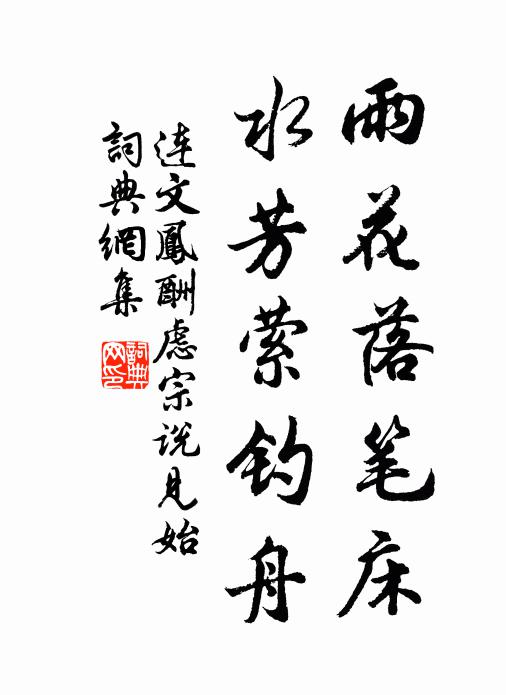 雨花落笔床
水芳萦钓舟
连文鳳酬虑宗说见始
詞典網集
詞典
网印